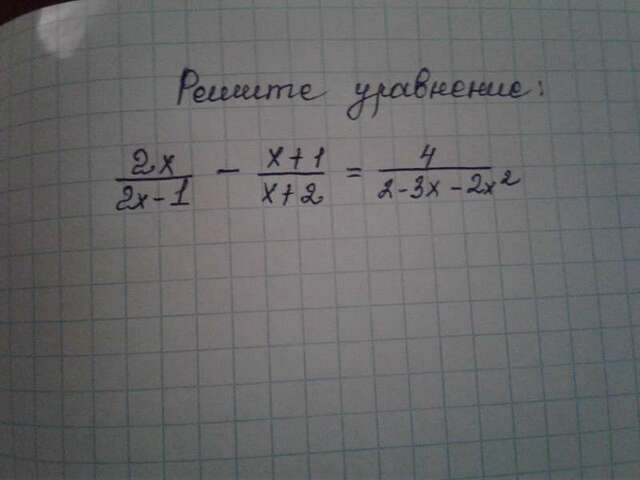 Решите уравнение:
2x/(2x-1) - (x+1)/(x+2) = 4/(2-3x-2x²)